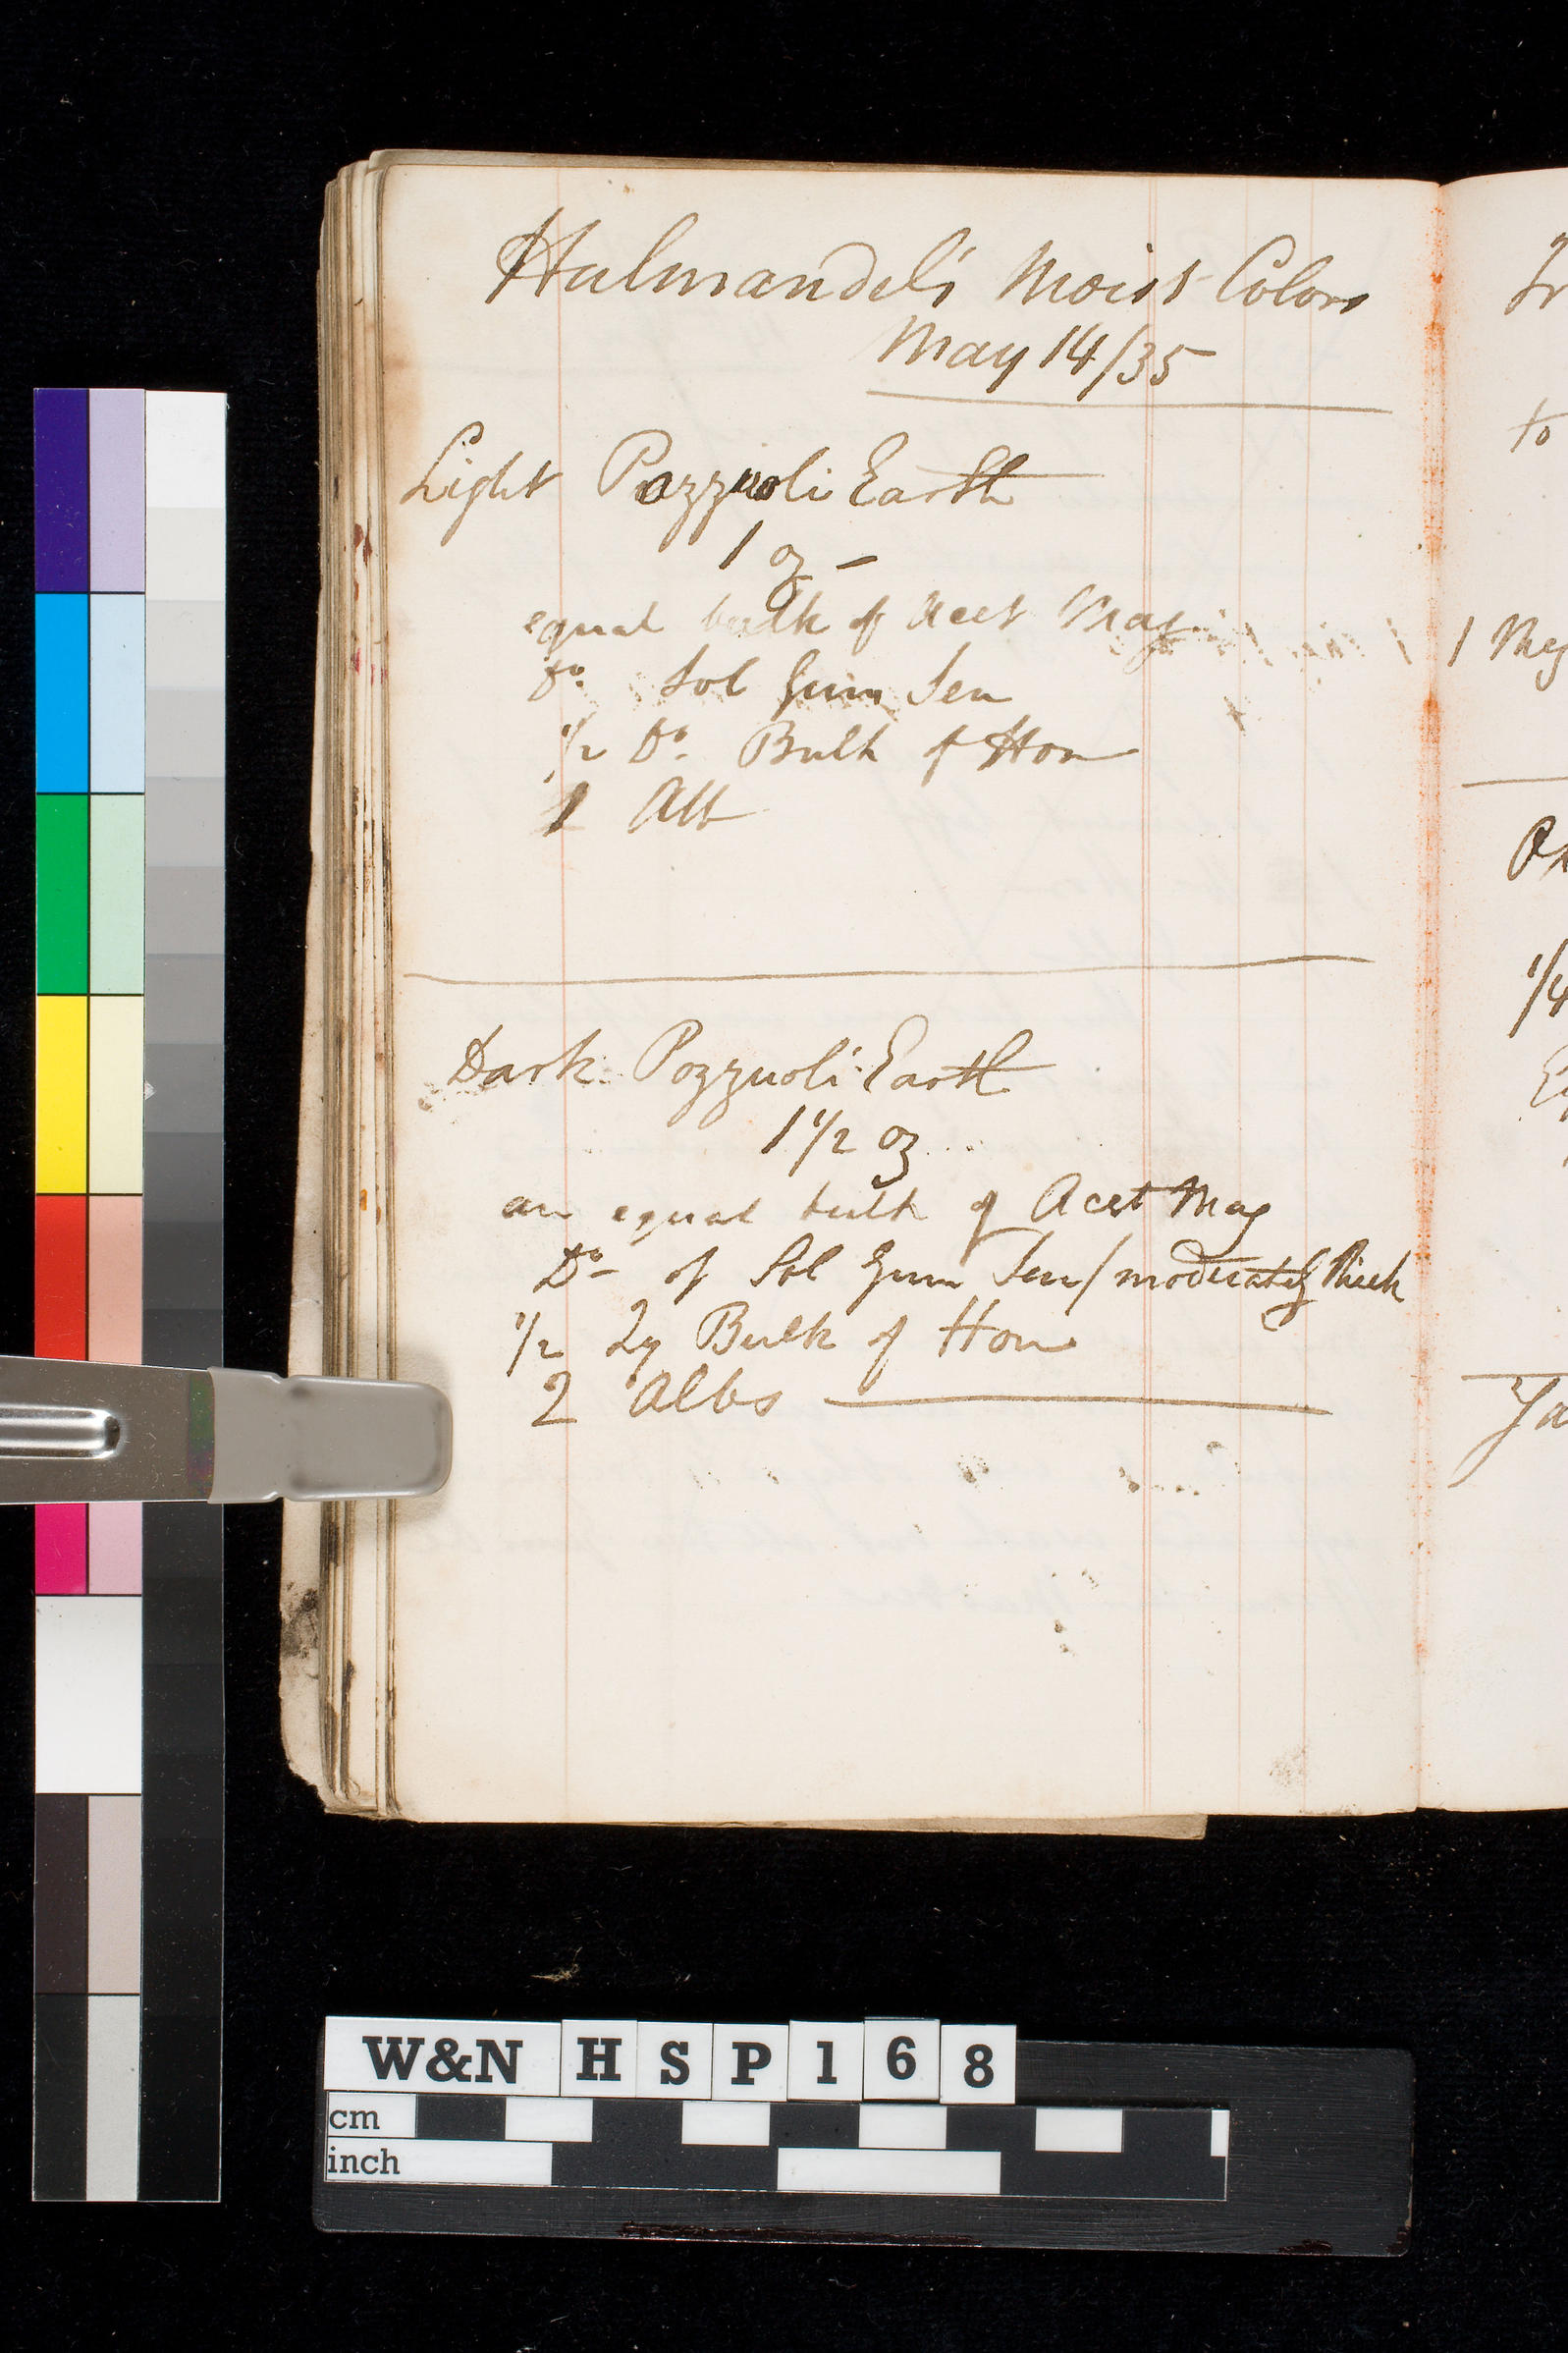 Hulmandel's Moist Colors
May 14/35
Light Pozzuoli Earth
1 oz -
equal bulk of Acet Mag
Do Sol Gum Sen
1/2 Do. Bulk of Hon
1 Alb
Dark Pozzuoli Earth
1 1/2 oz
an equal bulk of Acet Mag
Do of Sol Gum Sen / moderately thick
1/2 Bulk of Hon
2 Albs
to
1 Meg
1/4
Ya
W&N HSP168
cm
inch